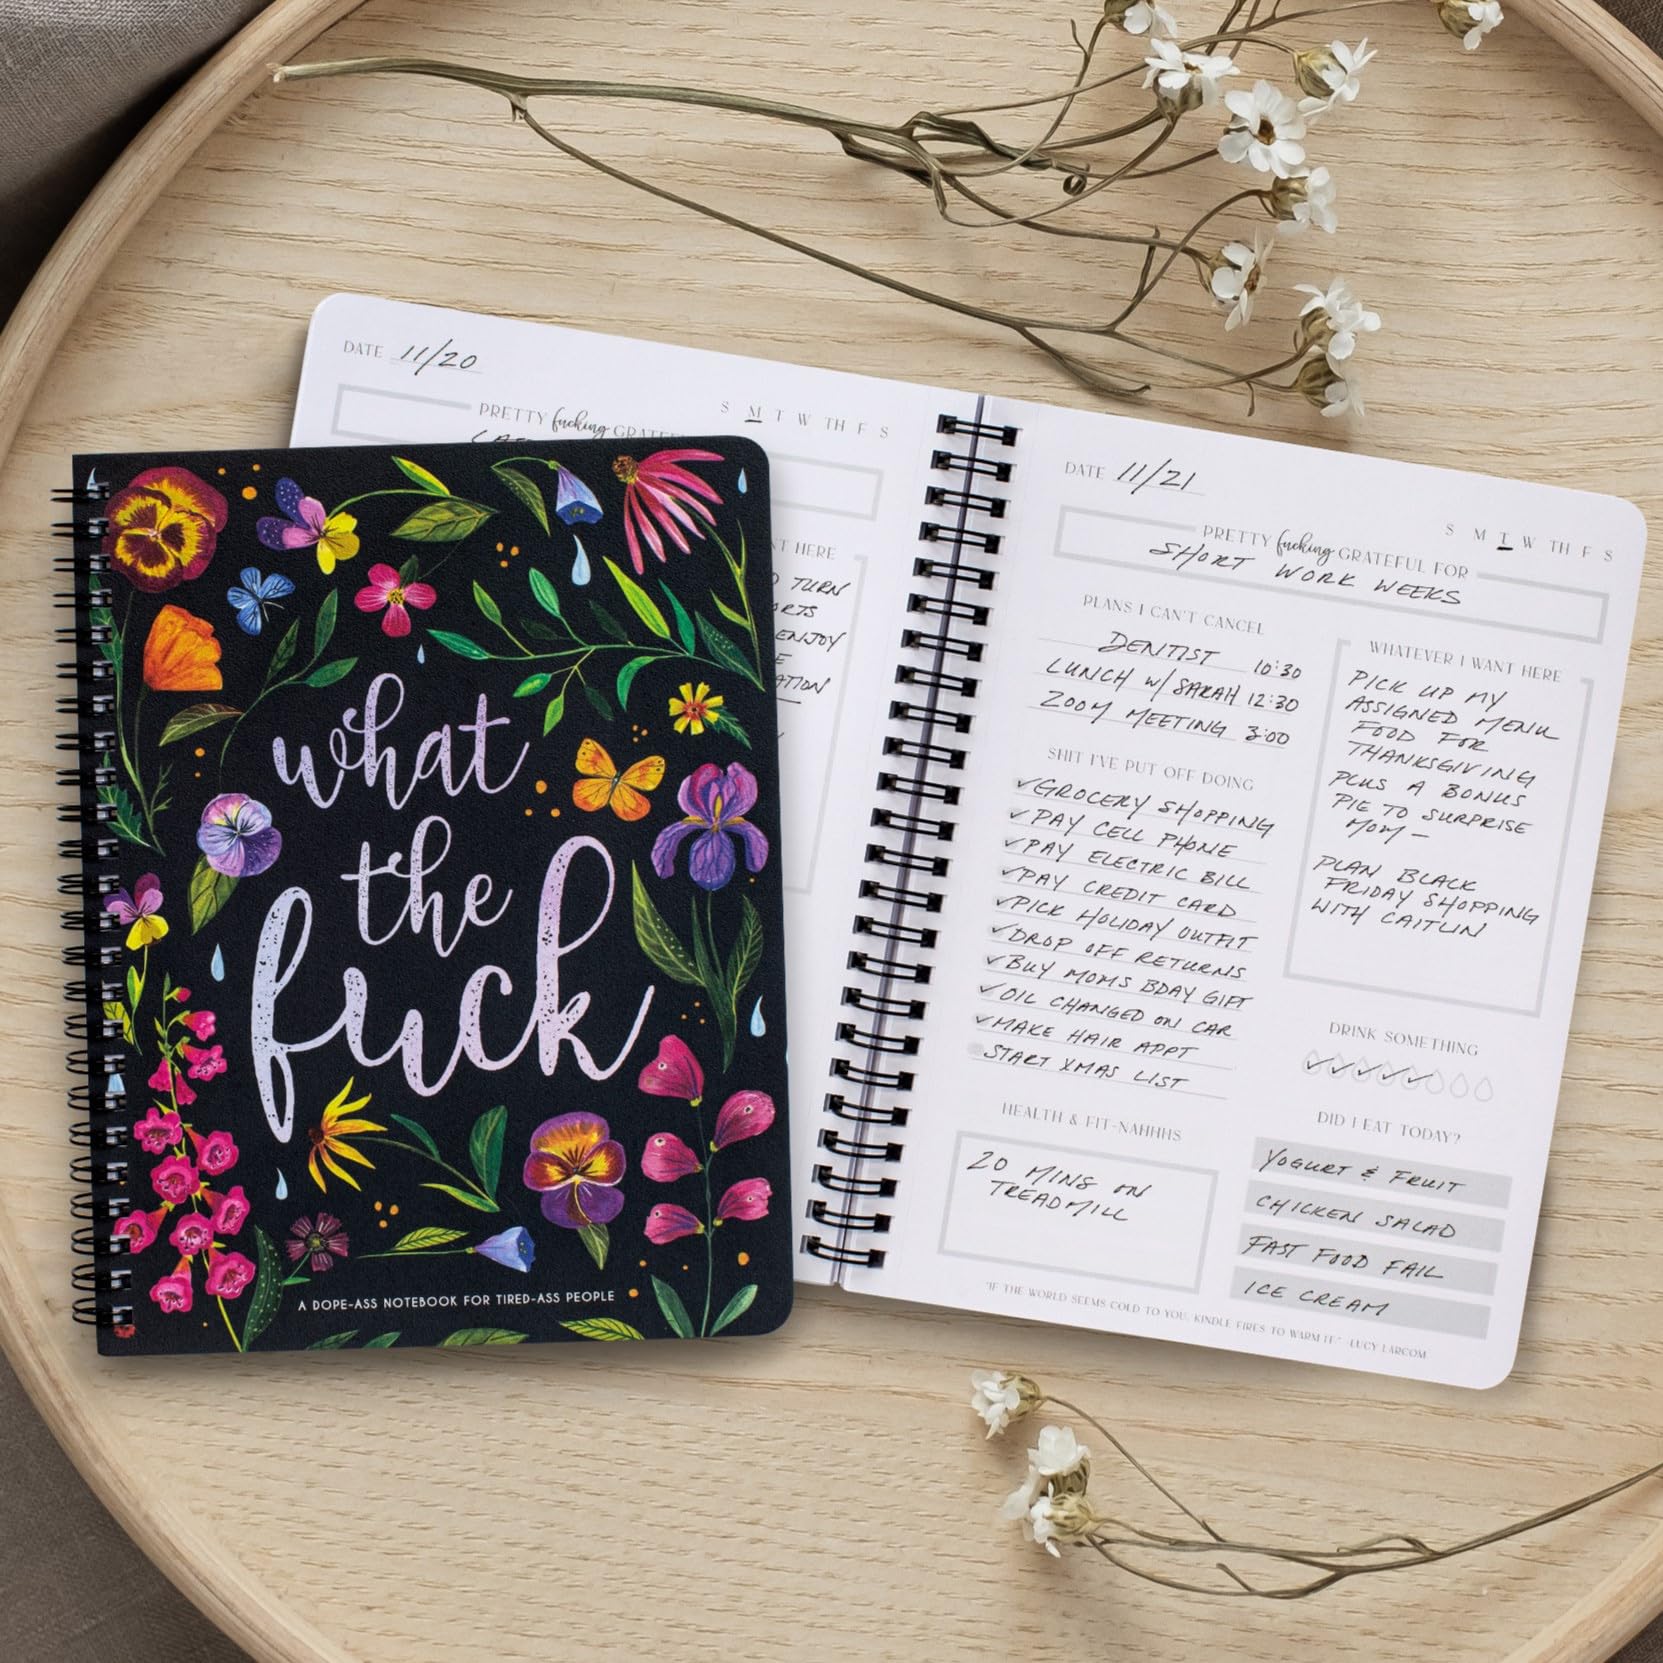 DATE 11/20
S M T W TH F S
PRETTY fucking
NT HERE
TURN
ENJOY
what
the
fuck
A DOPE-ASS NOTEBOOK FOR TIRED-ASS PEOPLE
DATE 11/21
S M T W TH F S
PRETTY fucking GRATEFUL FOR
SHORT WORK WEEKS
PLANS I CAN'T CANCEL
DENTIST 10:30
LUNCH W/ SARAH 12:30
ZOOM MEETING 3:00
SHIT I'VE PUT OFF DOING
✓GROCERY SHOPPING
✓PAY CELL PHONE
✓PAY ELECTRIC BILL
✓PAY CREDIT CARD
✓PICK HOLIDAY OUTFIT
✓DROP OFF RETURNS
✓BUY MOMS BDAY GIFT
✓OIL CHANGED ON CAR
✓MAKE HAIR APPT
START XMAS LIST
HEALTH & FIT-NAHHHS
20 MINS ON
TREADMILL
WHATEVER I WANT HERE
PICK UP MY
ASSIGNED MENU
FOOD FOR
THANKSGIVING
PLUS A BONUS
PIE TO SURPRISE
MOM-
PLAN BLACK
FRIDAY SHOPPING
WITH CAITLIN
DRINK SOMETHING
✓✓✓✓✓
DID I EAT TODAY?
YOGURT & FRUIT
CHICKEN SALAD
FAST FOOD FAIL
ICE CREAM
"IF THE WORLD SEEMS COLD TO YOU, KINDLE FIRES TO WARM IT." -LUCY LARCOM